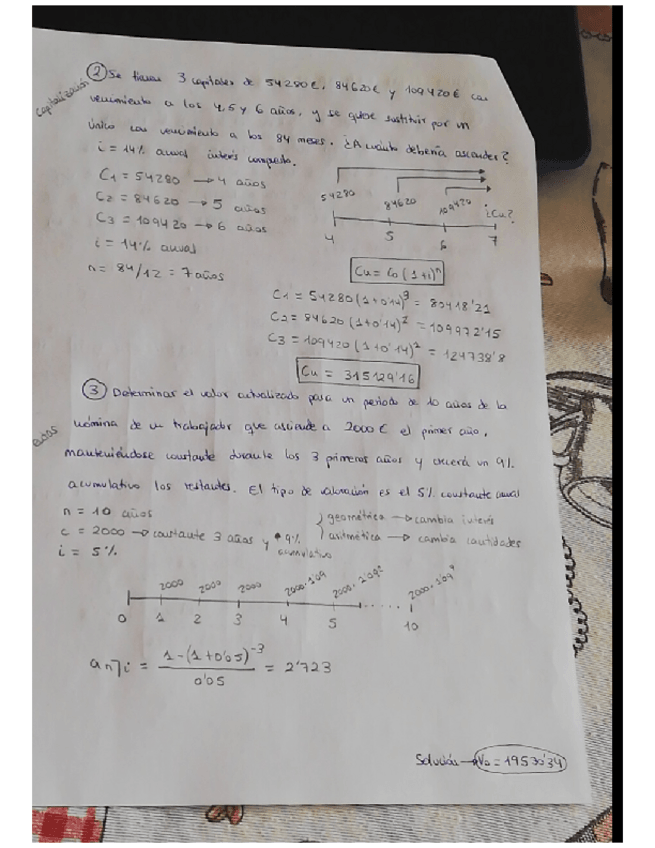 Capitalización
② Se tienen 3 capitales de 54280€, 84620€ y 109420€ con
vencimiento a los 4,5 y 6 años, y se quiere sustituir por un
único con vencimiento a los 84 meses. ¿A cuánto debería ascender?
i = 14% anual interés compuesto.
C1 = 54280 → 4 años
C2 = 84620 → 5 años
C3 = 109420 → 6 años
i = 14% anual
n = 84/12 = 7 años
54280 84620 109420 ¿Cu?
4 5 6 7
Cu = Co (1+i)ⁿ
C1 = 54280 (1+0'14)³ = 80418'21
C2 = 84620 (1+0'14)² = 109972'15
C3 = 109420 (1+0'14)² = 124738'8
Cu = 315129'16
③ Determinar el valor actualizado para un periodo de 10 años de la
nómina de un trabajador que asciende a 2000€ el primer año,
manteniéndose constante durante los 3 primeros años y crecerá un 9%
acumulativo los restantes. El tipo de valoración es el 5% constante anual
n = 10 años
c = 2000 → constante 3 años y ↑ 9% acumulativo
i = 5%
geométrica → cambia interés
aritmética → cambia cantidades
2000 2000 2000 2000·1'09 2000·1'09²
0 1 2 3 4 5 ...... 10
an˥i = 1-(1+0'05)⁻³ / 0'05 = 2'723
Solución → Vo = 19530'34